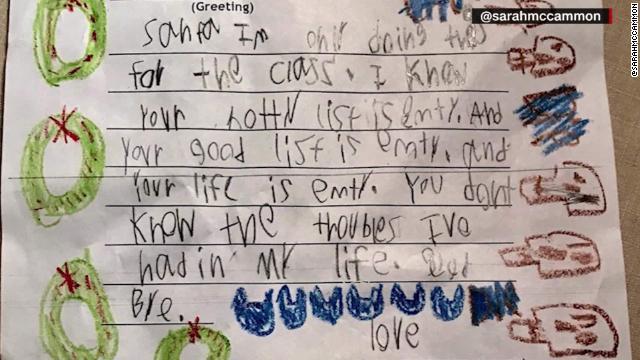 (Greeting)
@sarahmccammon
Santa Im only doing this
for the class. I know
your notty list is emty. And
your good list is emty. and
Your life is emty. You dont
know the troubles Ive
had in my life. good
Bye.
love
@SARAHMCCAMMON